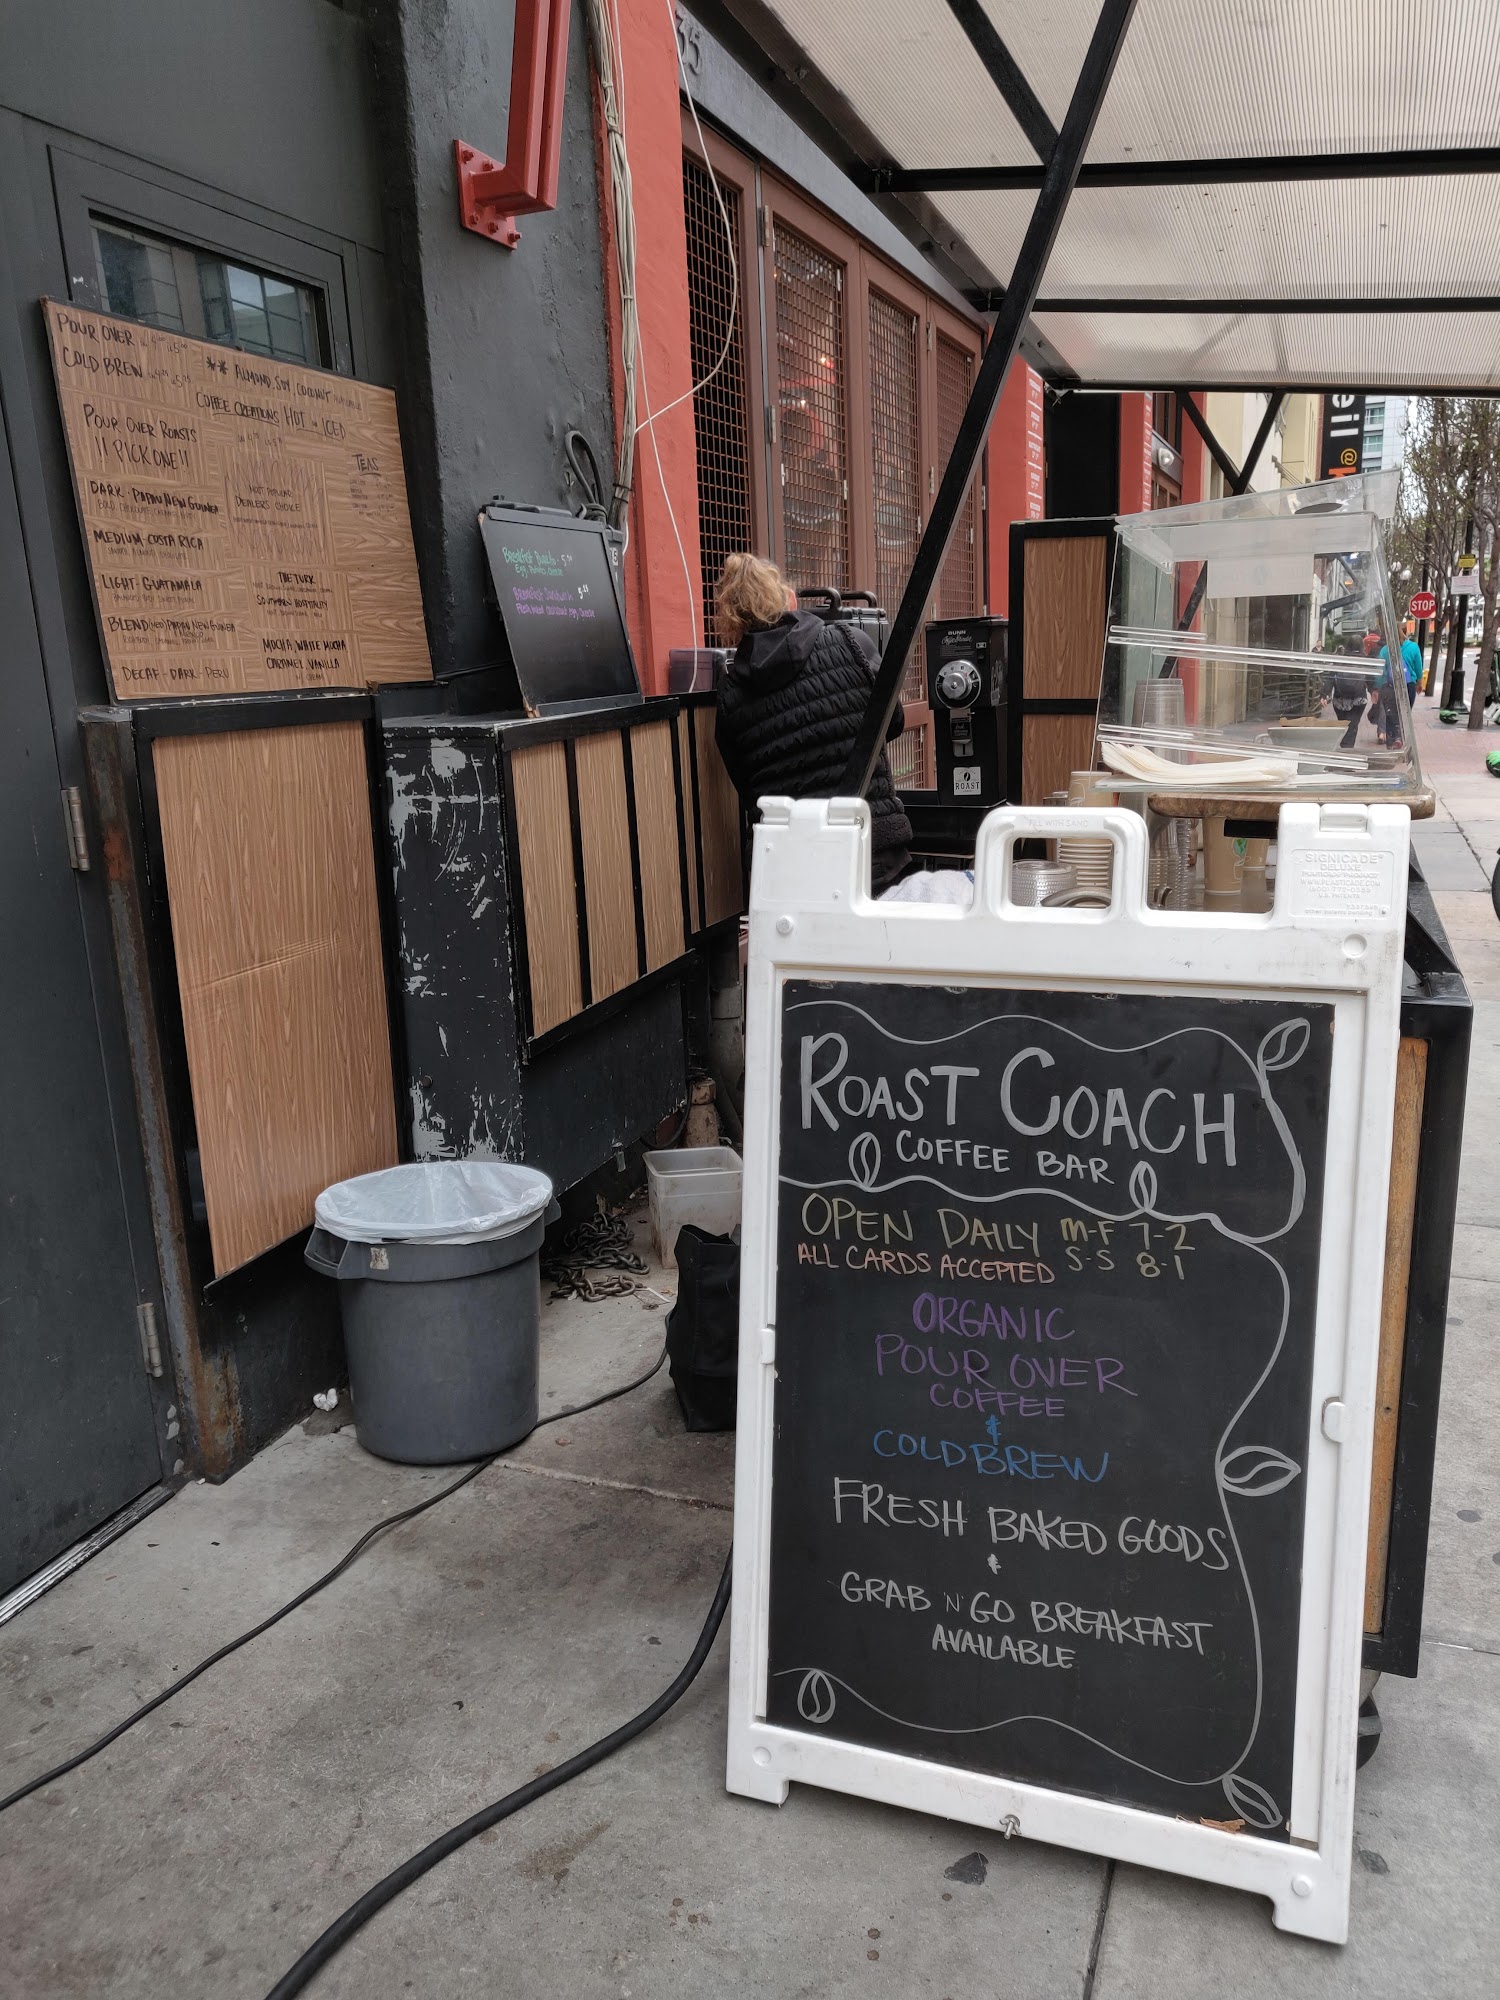 35
POUR OVER
COLD BREW
** ALMOND, SOY, COCONUT
COFFEE CREATIONS HOT or ICED
POUR OVER ROASTS
!! PICK ONE !!
TEAS
MOST POPULAR
DEALERS CHOICE
DARK - PAPAU NEW GUINEA
MEDIUM - COSTA RICA
LIGHT - GUATAMALA
BLEND (MED) PAPAU NEW GUINEA
DECAF - DARK - PERU
THE TURK
SOUTHERN HOSPITALITY
MOCHA, WHITE MOCHA
CARAMEL, VANILLA
Breakfast
Breakfast Sandwich
ROAST
STOP
eil @
SIGNICADE
DELUXE
ROAST COACH
COFFEE BAR
OPEN DAILY M-F 7-2
S-S 8-1
ALL CARDS ACCEPTED
ORGANIC
POUR OVER
COFFEE
&
COLD BREW
FRESH BAKED GOODS
&
GRAB 'N' GO BREAKFAST
AVAILABLE